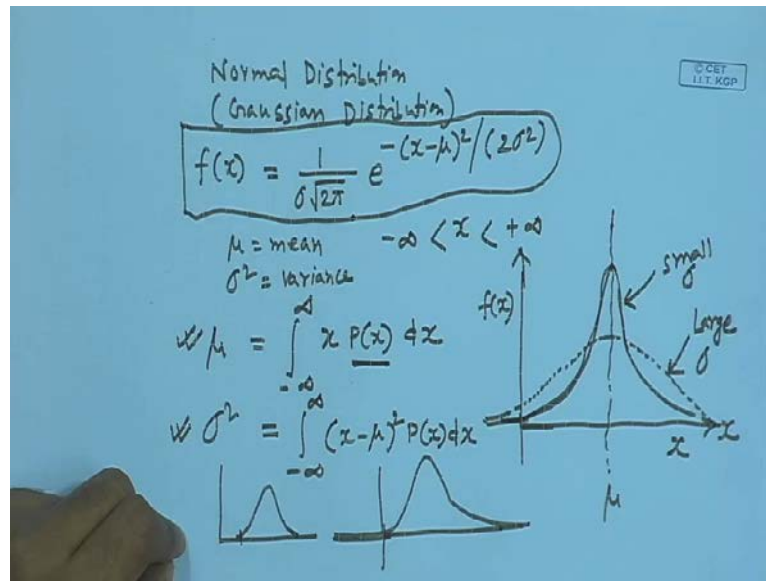 Normal Distribution
(Gaussian Distribution)
f(x) = 1/(σ√2π) e^-(x-μ)²/(2σ²)
μ = mean -∞ < x < +∞
σ² = variance
μ = ∫_-∞^∞ x P(x) dx
σ² = ∫_-∞^∞ (x-μ)² P(x) dx
f(x)
small
σ
Large
σ
x x
μ
© CET
I.I.T. KGP